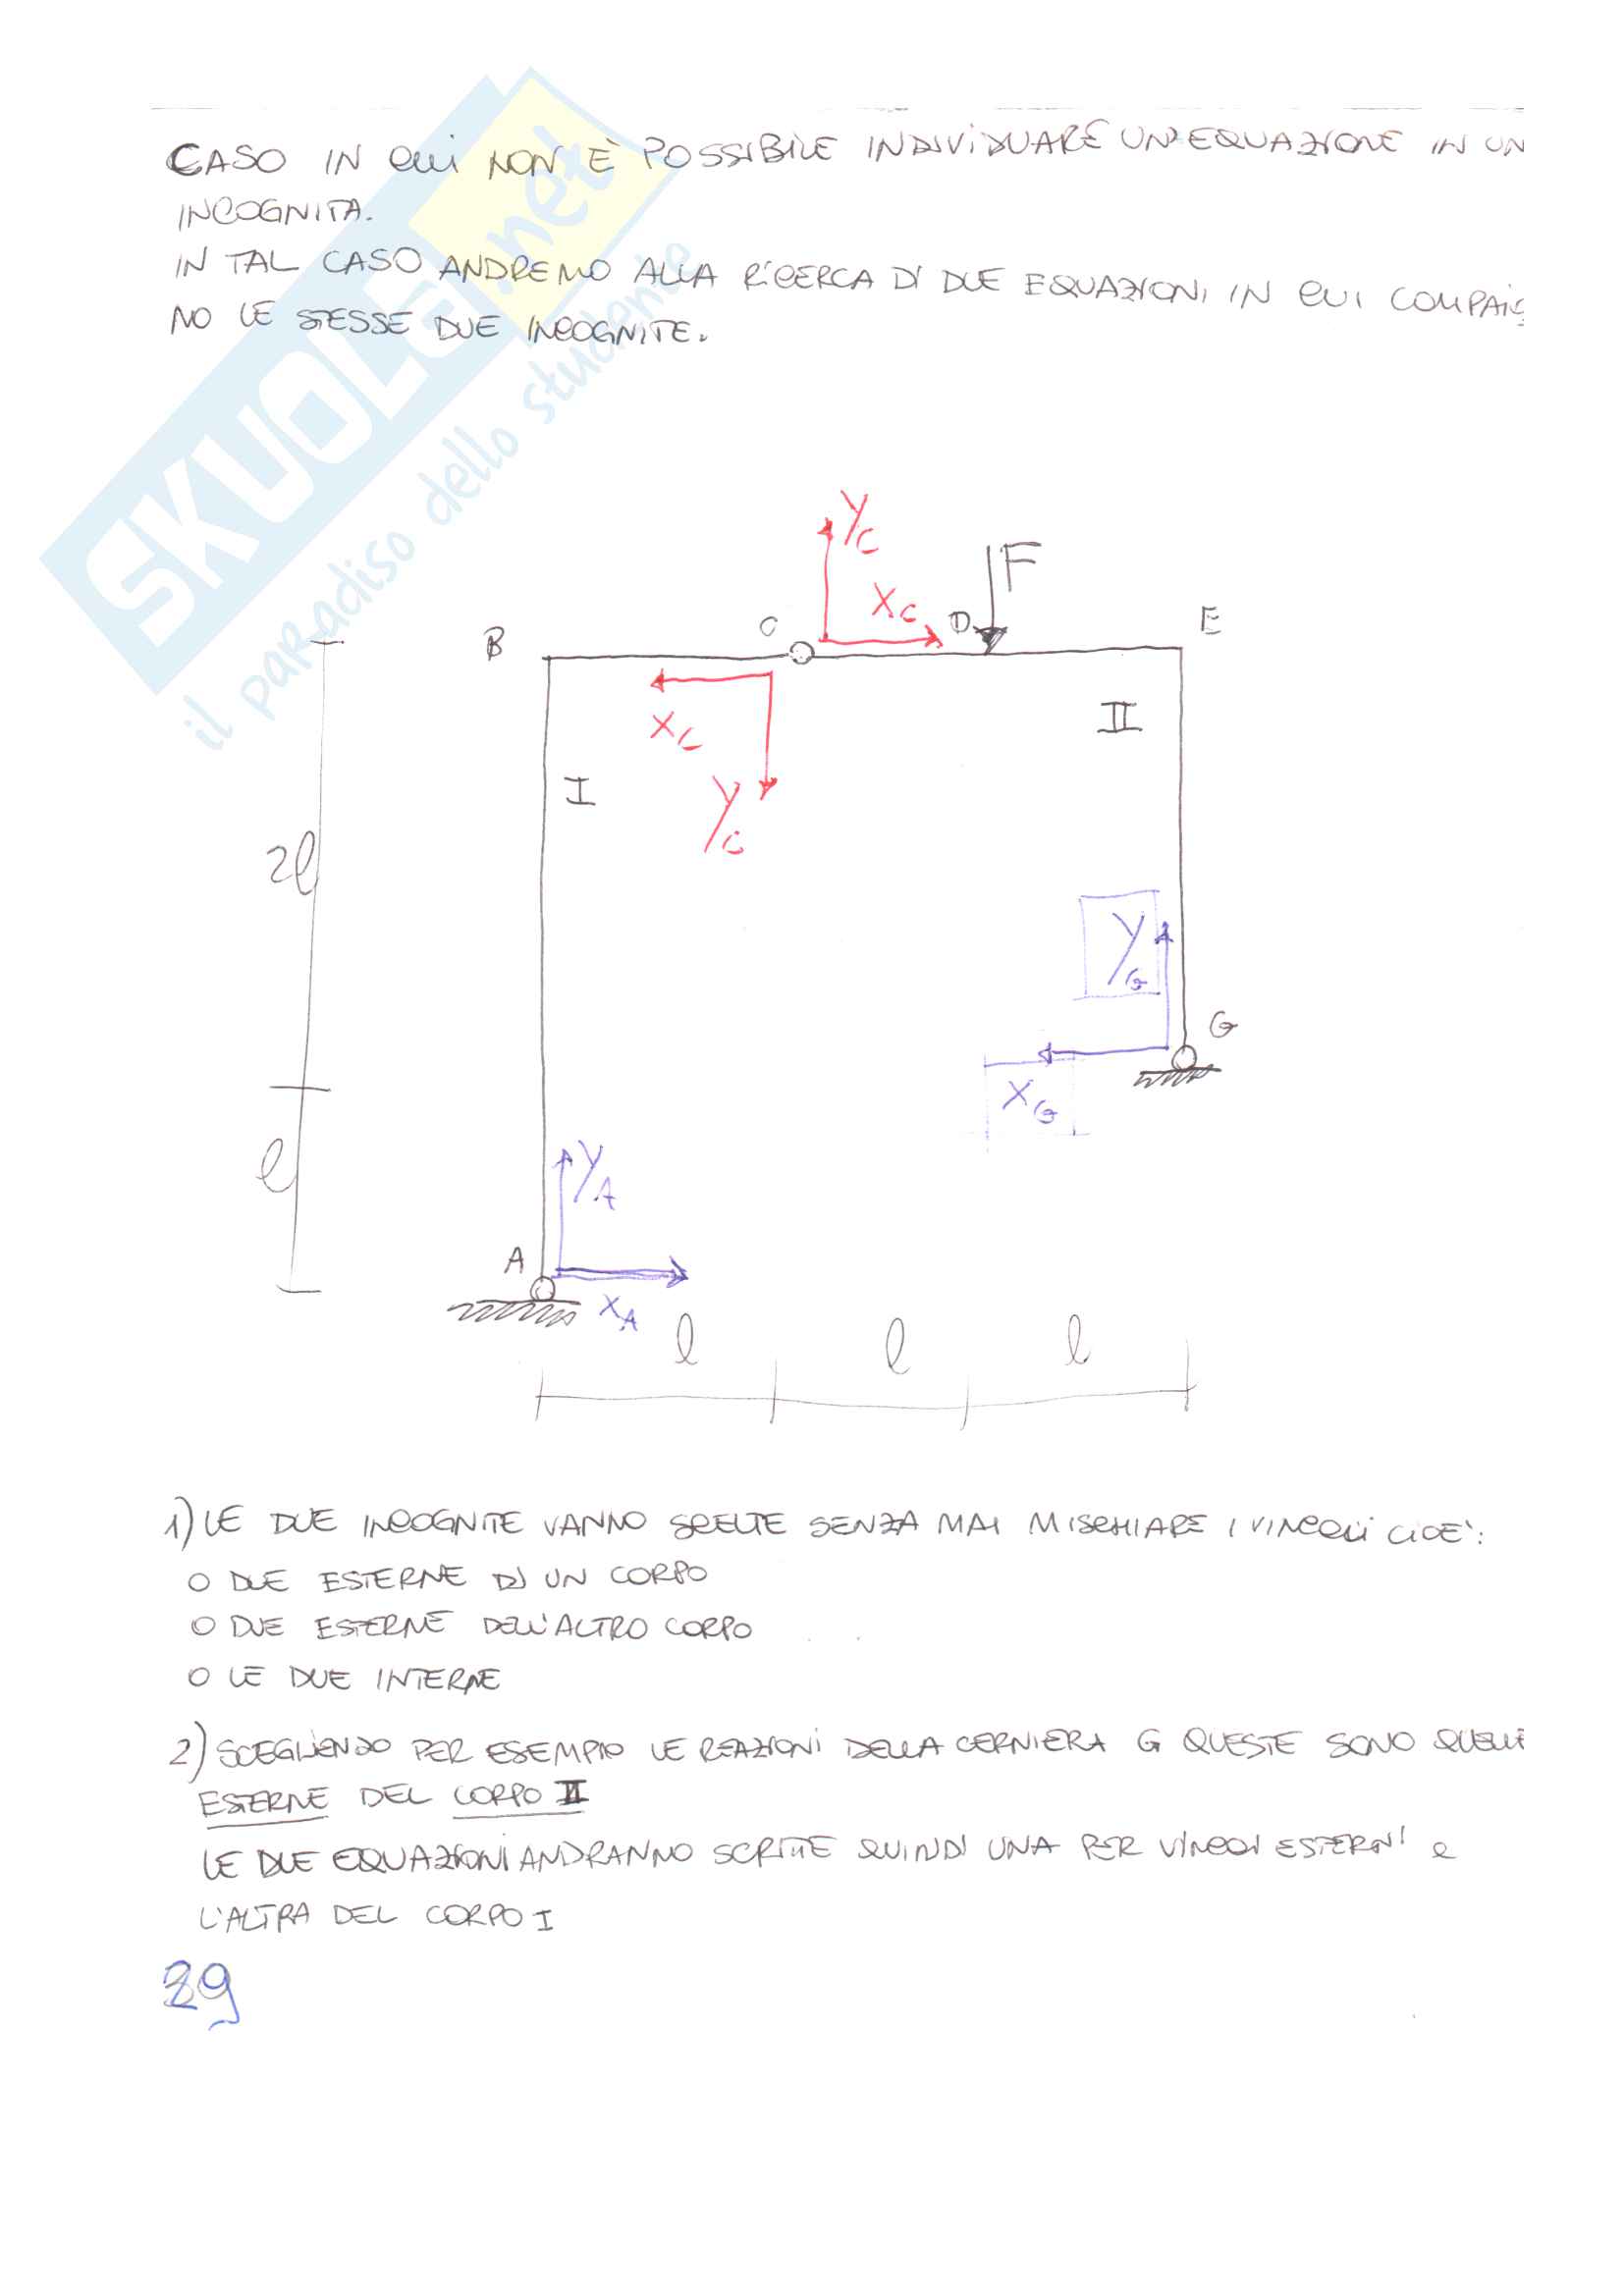 CASO IN CUI NON È POSSIBILE INDIVIDUARE UN'EQUAZIONE IN UN
INCOGNITA.
IN TAL CASO ANDREMO ALLA RICERCA DI DUE EQUAZIONI IN CUI COMPAIO
NO LE STESSE DUE INCOGNITE.
SKUOLA.net
il paradiso dello studente
Y_C
F
X_C
B
C
D
E
X_C
II
I
Y_C
2l
Y_G
G
X_G
l
Y_A
A
X_A
l
l
l
1) LE DUE INCOGNITE VANNO SCELTE SENZA MAI MISCHIARE I VINCOLI CIOE':
O DUE ESTERNE DI UN CORPO
O DUE ESTERNE DELL'ALTRO CORPO
O LE DUE INTERNE
2) SCEGLIENDO PER ESEMPIO LE REAZIONI DELLA CERNIERA G QUESTE SONO QUELLE
ESTERNE DEL CORPO II
LE DUE EQUAZIONI ANDRANNO SCRITTE QUINDI UNA PER VINCOLI ESTERNI e
L'ALTRA DEL CORPO I
29